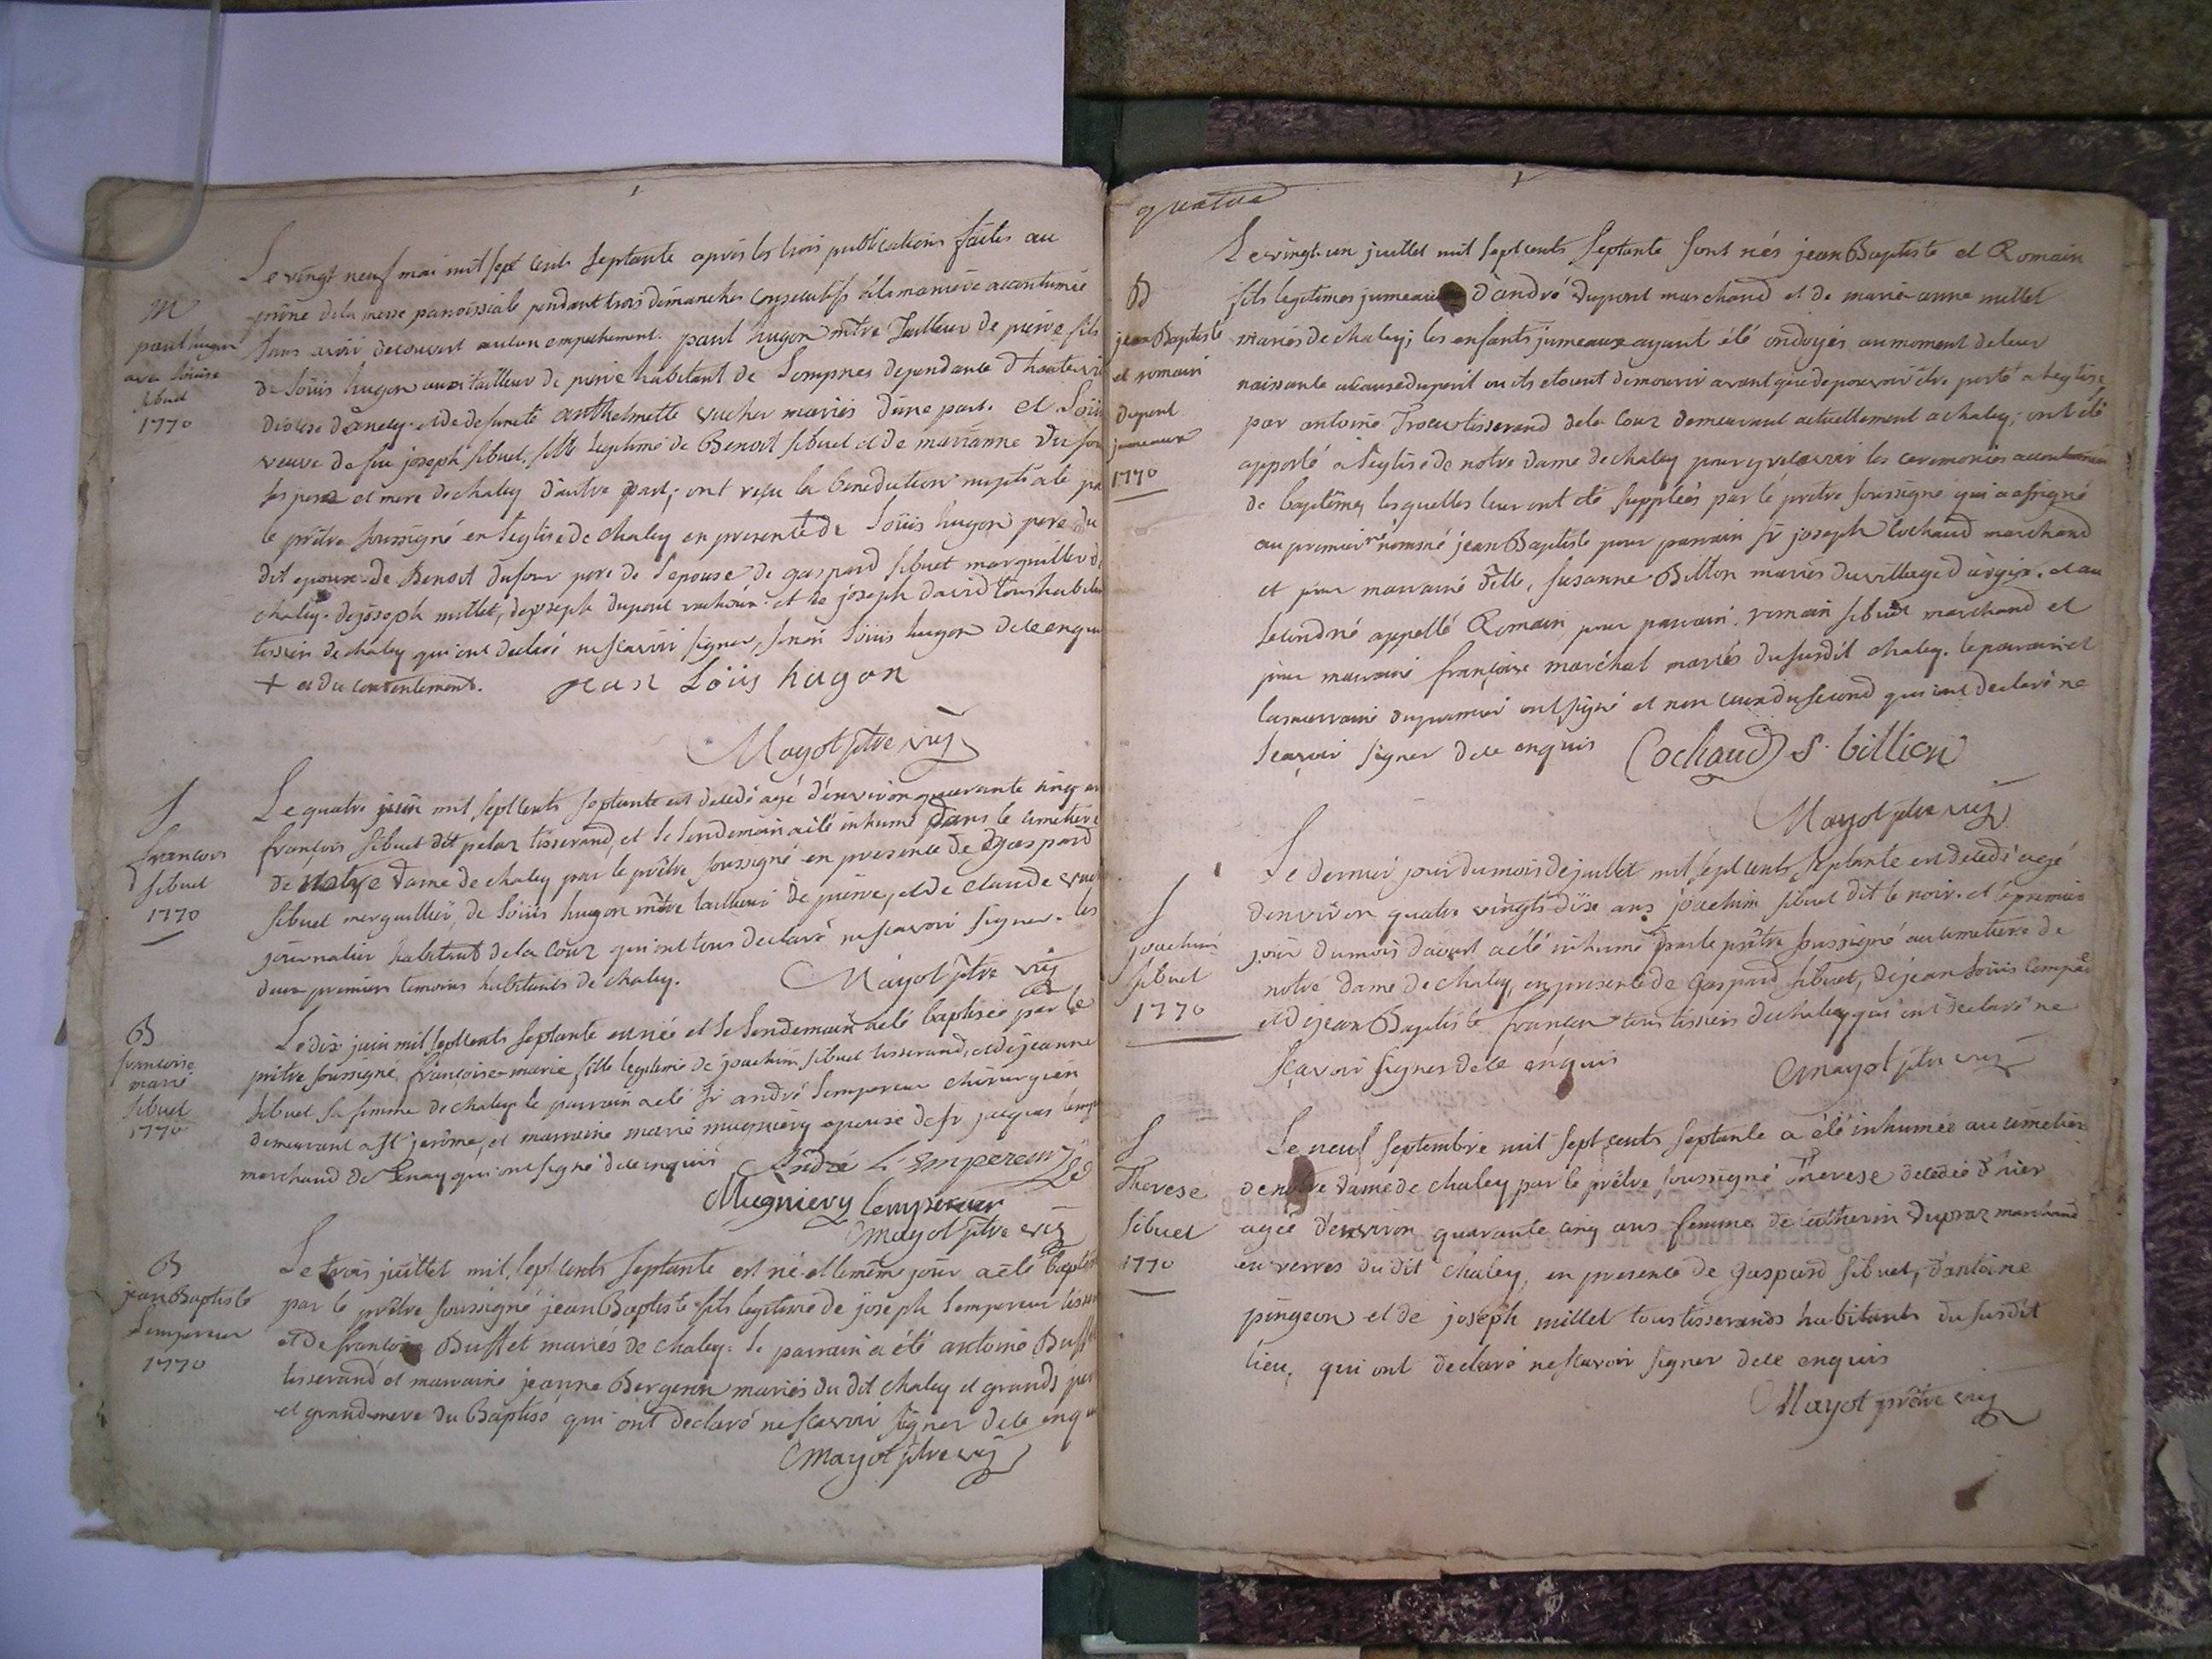 M
paul hugon
avec Loüise
sibuet
1770
Le vingt neuf mai mil sept cents septante après les trois publications faites au
prône de la messe paroissiale pendant trois dimanches consecutifs à la maniere accoutumée
sans avoir decouvert aucun empechement. paul hugon mtre Tailleur de pierre fils
de Loüis hugon aussi tailleur de pierre habitant de Lompnes dependante d'hautevi
diocese d'anecy et de defunte anthelmette vucher mariés d'une part. et Loüi
veuve de feu joseph sibuet, fille legitime de Benoit sibuet et de marianne Dufou
ses pere et mere de chaley d'autre part; ont reçu la benediction nuptiale pa
le prêtre soussigné en l'eglise de chaley en presence de Loüis hugon pere du
dit epoux. de Benoit dufour pere de l'epouse de gaspard sibuet marguillier d
chaley. de joseph millet, de joseph dupont et de joseph david tous habitan
tissiers de chaley qui ont declaré ne scavoir signer, sinon Loüis hugon de ce enqui
+ et du consentement. jean Loüis hugon
Mayot ptre vic
S
francois
sibuet
1770
Le quatre juin mil sept cents septante est decedé agé d'environ quarante cinq an
françois sibuet dit pelaz tisserand, et le lendemain a été inhumé dans le cimetiere
de notre dame de chaley par le prêtre soussigné en presence de gaspard
sibuet marguillier, de Loüis hugon mtre tailleur de pierre, et de claude vuc
journalier habitant de la Cour qui ont tous declaré ne scavoir signer. les
deux premiers temoins habitants de chaley. Mayot ptre vic
B
francoise
marie
sibuet
1770
Le dix juin mil sept cents septante est née et le lendemain a été baptisée par le
prêtre soussigné françoise-marie, fille legitime de joachim sibuet tisserand, et de jeanne
sibuet sa femme de chaley le parrain a été sr andré Lempereur chirurgien
demeurant a St jerôme, et marraine marie mugniery epouse de sr jacques lemp
marchand de Tenay qui ont signé de ce enquis André L'empereur
Mugniery lempereur
Mayot ptre vic
B
jean Baptiste
Lempereur
1770
Le trois juillet mil sept cents septante est né et le même jour a été baptis
par le prêtre soussigné jean Baptiste fils legitime de joseph Lempereur tisser
et de francoise Buffet mariés de chaley. le parrain a été antoine Buff
tisserand et marraine jeanne Bergeron mariés du dit chaley et grands per
et grand-mere du Baptisé qui ont declaré ne scavoir signer de ce enqu
Mayot ptre vic
quatre
B
jean Baptiste
et romain
dupont
jumeaux
1770
Le vingt-un juillet mil sept cents septante sont nés jean Baptiste et Romain
fils legitimes jumeaux d'andré dupont marchand et de marie-anne millet
mariés de chaley; les enfants jumeaux ayant été ondoyés au moment de leur
naissance a cause du peril ou ils etoient de mourir avant que de pouvoir être porté a l'eglise
par antoine Trocu tisserand de la Cour demeurant actuellement a chaley, ont été
apporté a l'eglise de notre dame de chaley pour y recevoir les ceremonies accoutumées
de baptême, lesquelles leur ont été supplées par le prêtre soussigné qui a assigné
au premier né nommé jean Baptiste pour parrain sr joseph Cochaud marchand
et pour marraine dlle, susanne Billon mariés du village d'argix. et au
second né appellé Romain pour parrain romain sibuet marchand et
pour marraine françoise maréchal mariés du susdit chaley. le parrain et
la marraine du premier ont signé et non ceux du second qui ont declaré ne
scavoir signer de ce enquis Cochaud S. billion
Mayot ptre vic
S
joachim
sibuet
1770
Le dernier jour du mois de juillet mil sept cents septante est decedé agé
d'environ quatre vingts-dix ans joachim sibuet dit le noir. et le premier
jour du mois d'aout a été inhumé par le prêtre soussigné au cimetiere de
notre dame de chaley, en presence de Gaspard sibuet, de jean Loüis
et de jean Baptiste françon tous tissiers de chaley qui ont declaré ne
sçavoir signer de ce enquis Mayot ptre vic
S
Therese
sibuet
1770
Le neuf septembre mil sept cents septante a été inhumée au cimetiere
de notre dame de chaley par le prêtre soussigné Therese decedée d'hier
agée d'environ quarante cinq ans femme de catherin Dupraz marchand
en verres du dit chaley, en presence de Gaspard sibuet, d'antoine
pingeon et de joseph millet tous tisserands habitants du susdit
lieu, qui ont declaré ne scavoir signer de ce enquis
Mayot prêtre vic